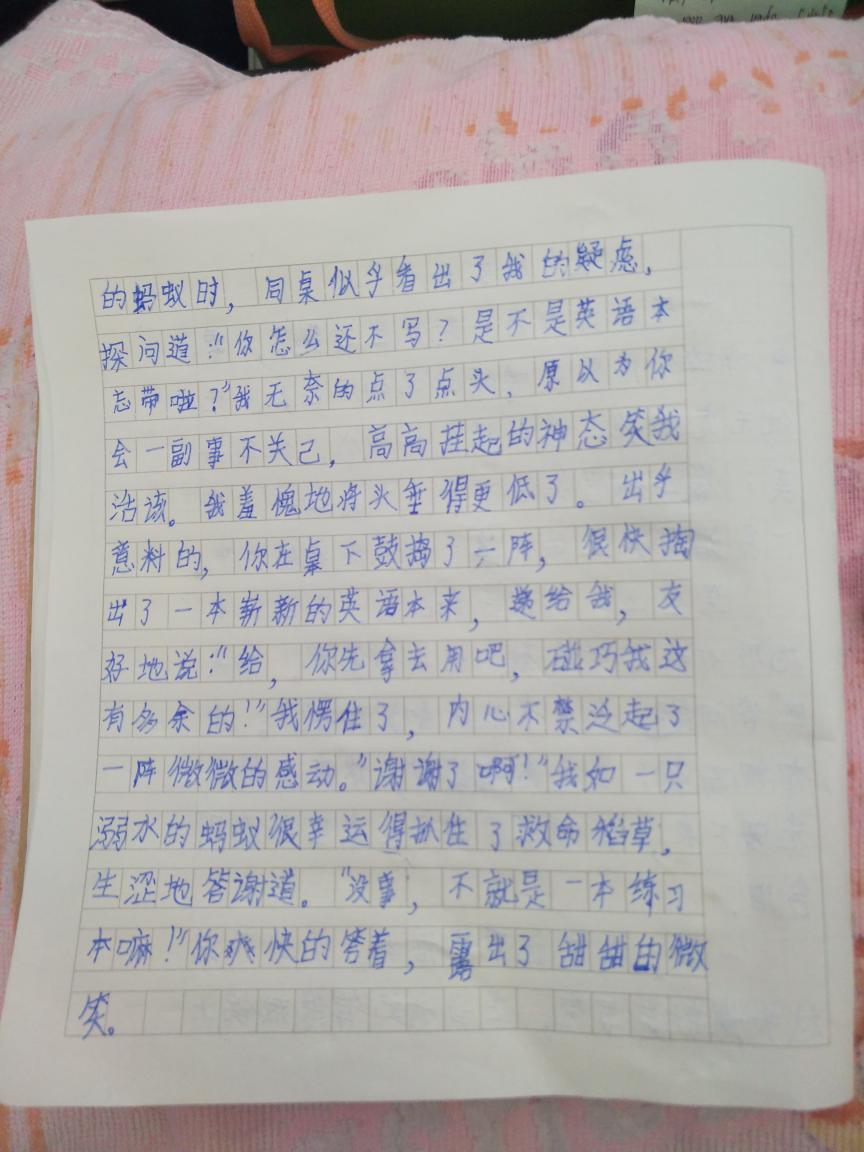 的蚂蚁时，同桌似乎看出了我的疑虑，
探问道：“你怎么还不写？是不是英语本
忘带啦？”我无奈的点了点头，原以为你
会一副事不关己，高高挂起的神态笑我
活该。我羞愧地将头垂得更低了。出乎
意料的，你在桌下鼓捣了一阵，很快掏
出了一本崭新的英语本来，递给我，友
好地说：“给，你先拿去用吧，碰巧我这
有多余的！”我愣住了，内心不禁泛起了
一阵微微的感动。“谢谢了啊！”我如一只
溺水的蚂蚁很幸运得抓住了救命稻草，
生涩地答谢道。“没事，不就是一本练习
本嘛！”你爽快的答着，露出了甜甜的微
笑。